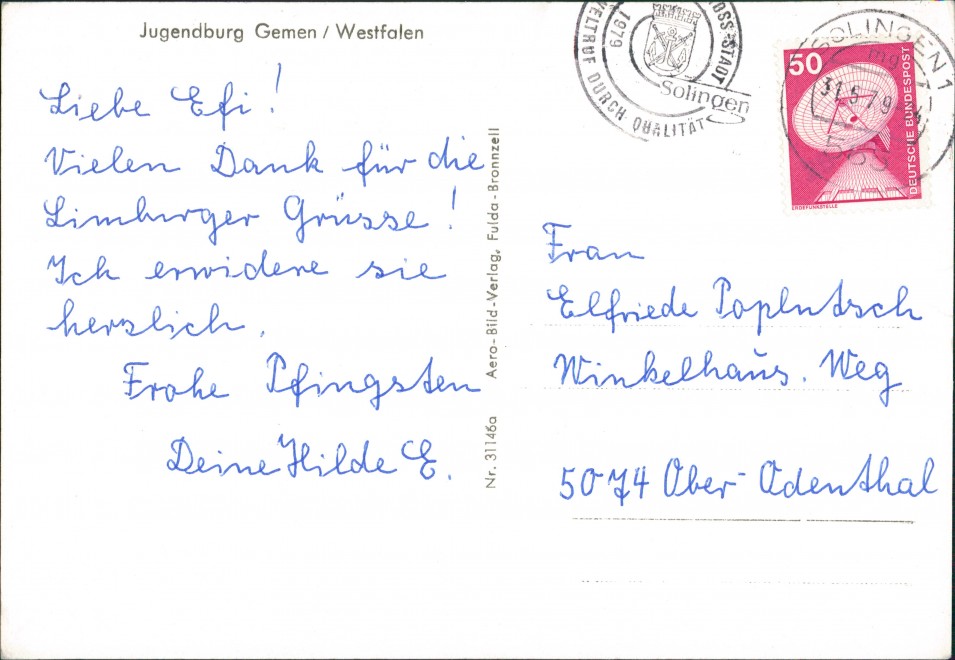 Jugendburg Gemen / Westfalen
Liebe Efi!
Vielen Dank für die
Limburger Grüsse!
Ich erwidere sie
herzlich.
Frohe Pfingsten
Deine Hilde E.
Nr. 31146a Aero-Bild-Verlag, Fulda-Bronnzell
1979
WELTRUF DURCH QUALITÄT
Solingen
SOLINGEN 1
31.5.79
50
DEUTSCHE BUNDESPOST
ERDEFUNKSTELLE
Frau
Elfriede Poplutsch
Winkelhaus. Weg
5074 Ober-Odenthal